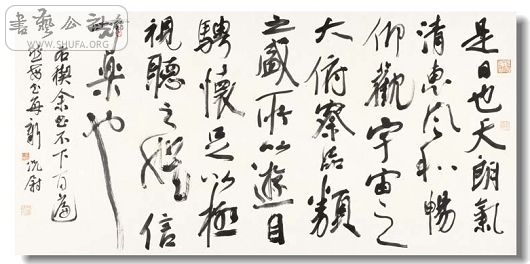 書藝公社
www.SHUFA.ORG
是日也天朗氣
清惠風和暢
仰觀宇宙之
大俯察品類
之盛所以遊目
騁懷足以極
視聽之娛信
可樂也
禊余书不下百遍
每新